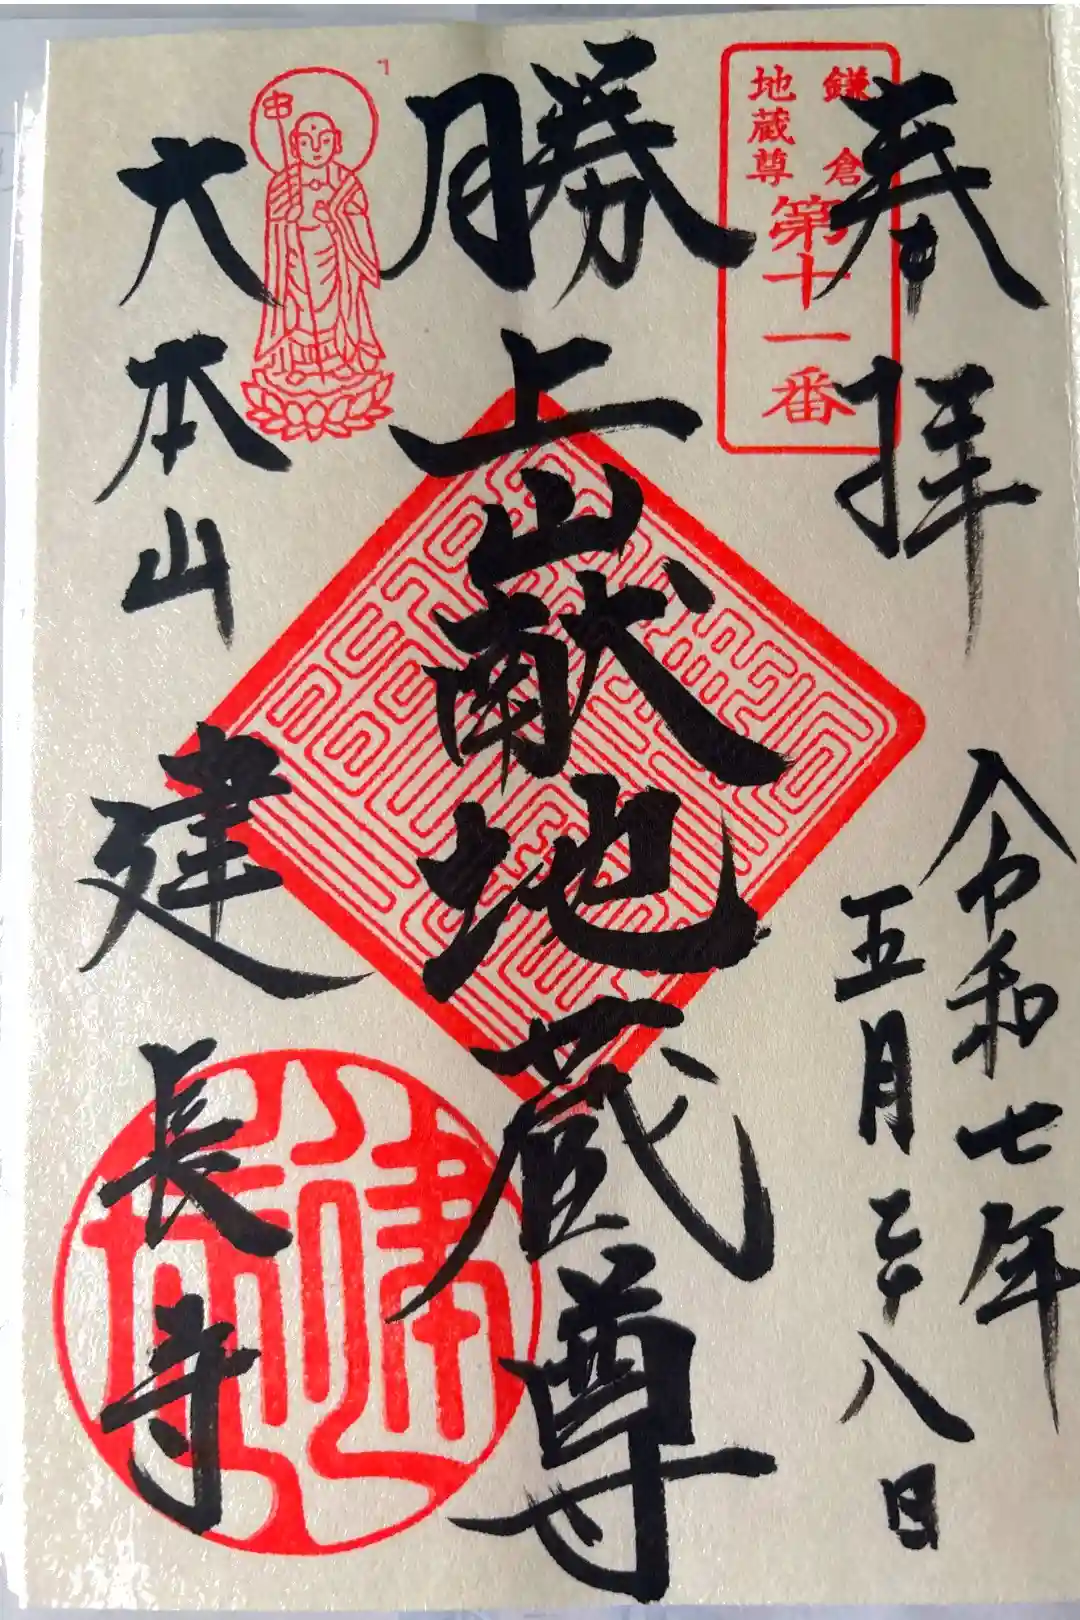 奉拝
鎌倉
地蔵尊
第十一番
令和七年
五月二十八日
勝上山献地蔵尊
大本山
建長寺